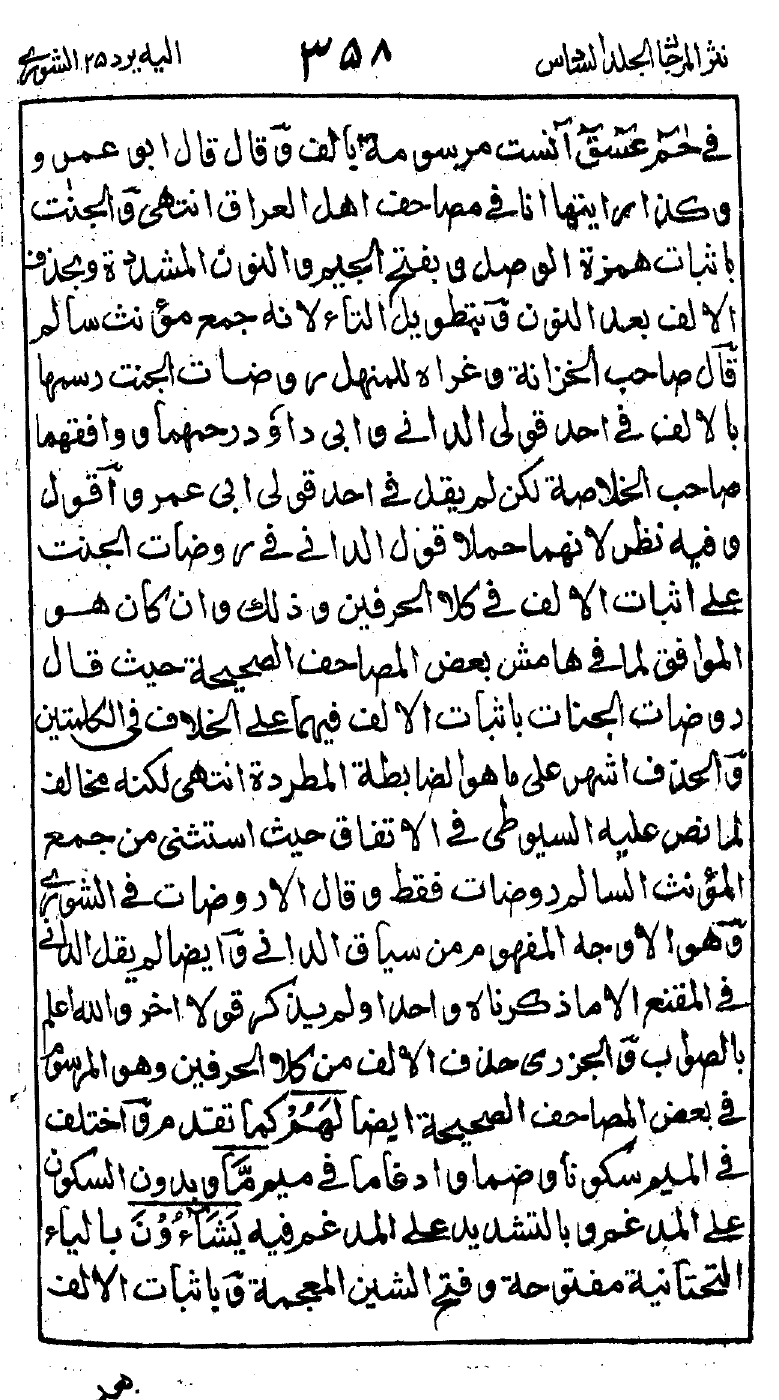 نثر المرجان الجلد السادس ٣٥٨ اليه يرد ٢٥ الشورى
في حٰمٓ عٓسٓقٓ آنست مرسومة بالف وٓقال قال ابو عمرو و
وكذا رايتها انا في مصاحف اهل العراق انتهى وٓالجنٰت
باثبات همزة الوصل و بفتح الجيم والنون المشددة وبحذف
الالف بعد النون وٓبتطويل التاء لانه جمع مؤنث سالم
قٓال صاحب الخزانة وغراه للمنهل روضات الجنت رسمها
بالالف في احد قولى الداني وابى داؤد رحمهما ووافقهما
صاحب الخلاصة لكن لم يقل في احد قولى ابى عمرو آقول
وفيه نظر لانهما حملا قول الداني في روضات الجنت
على اثبات الالف في كلا الحرفين وذلك وان كان هو
الموافق لما في هامش بعض المصاحف الصحيحة حيث قال
روضات الجنات باثبات الالف فيهما على الخلاف في الكلمتين
وٓالحذف اشهر على ما هو الضابطة المطردة انتهى لكنه مخالف
لما نص عليه السيوطى في الاتفاق حيث استثنى من جمع
المؤنث السالم روضات فقط وقال الا روضات في الشورى
وٓهو الاوجه المفهوم من سياق الداني وٓايضا لم يقل الداني
في المقنع الا ما ذكرناه واحدا ولم يذكر قولا اخر والله اعلم
بالصواب وٓالجزرى حذف الالف من كلا الحرفين وهو المرسوم
في بعض المصاحف الصحيحة ايضا لَهُمْ كما تقدم وٓاختلف
في الميم سكونا وضما وادغاما في ميم مَّا وبدون السكون
على المدغم وبالتشديد على المدغم فيه يَشَآءُوْنَ بالياء
التحتانية مفتوحة وفتح الشين المعجمة وٓباثبات الالف